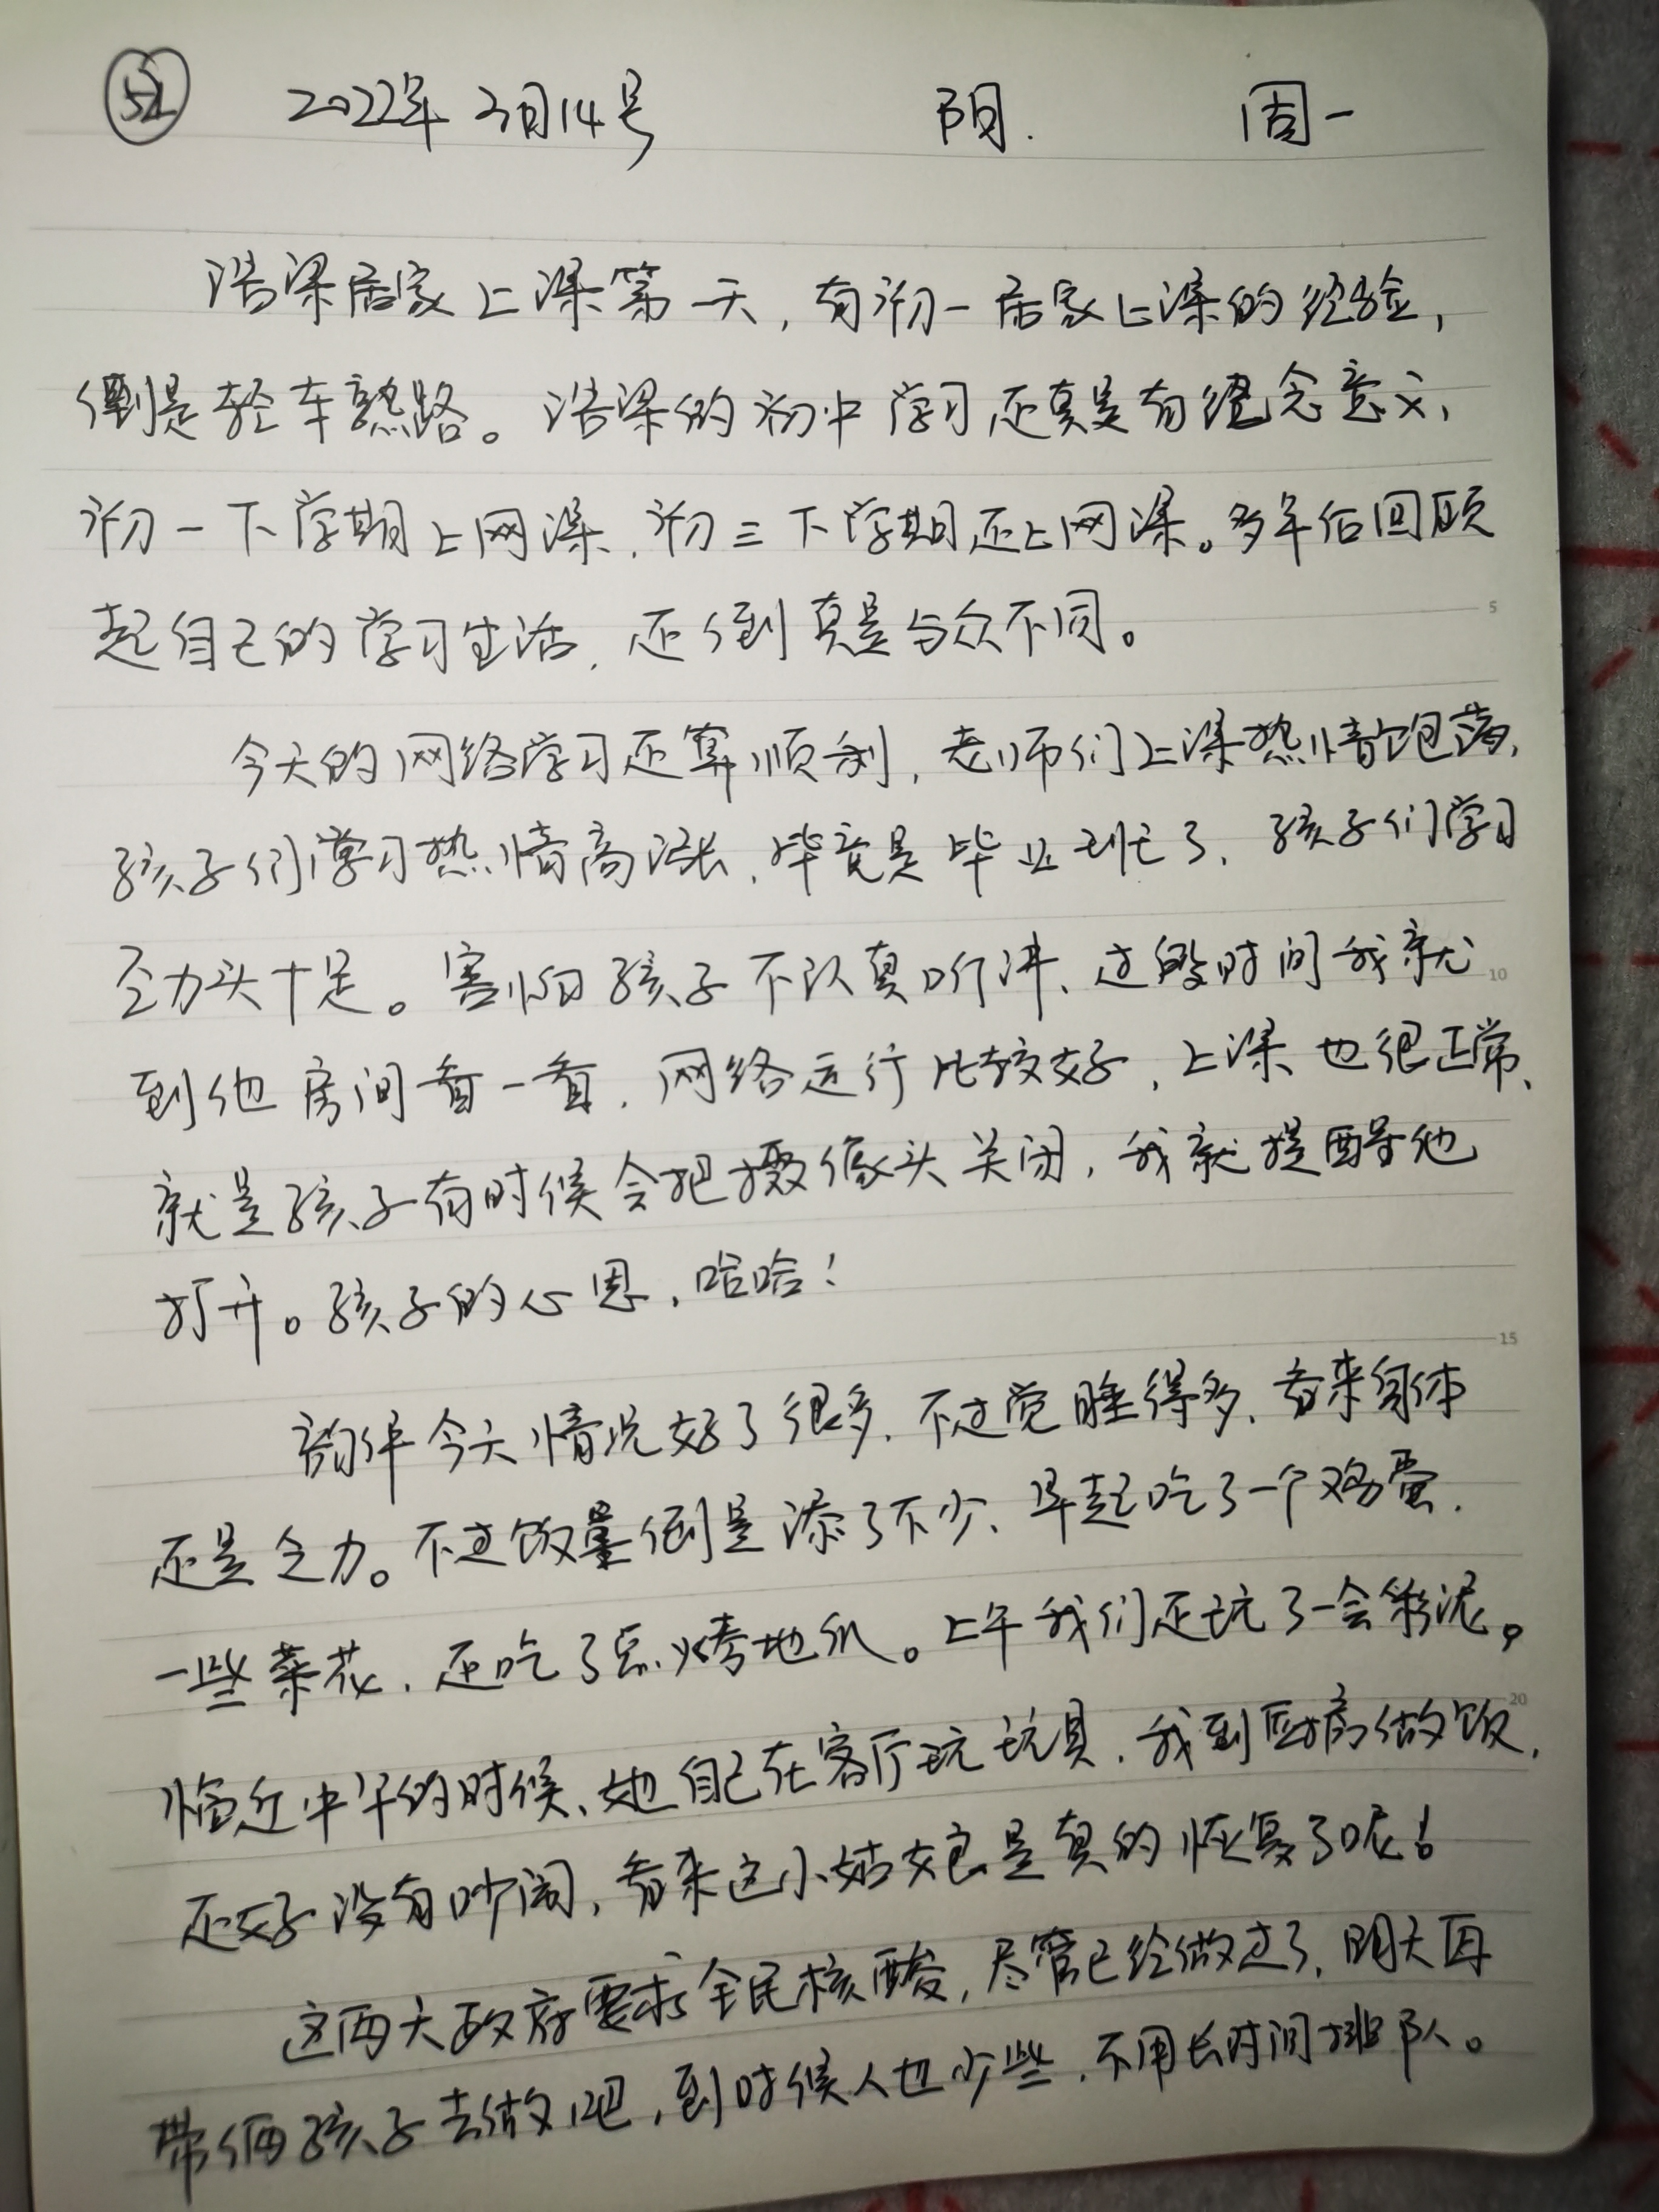 2022年3月14号 阴. 周一
浩梁居家上课第一天，有初一居家上课的经验，
倒是轻车熟路。浩梁的初中学习还真是有纪念意义，
初一下学期上网课，初三下学期还上网课。多年后回顾
起自己的学习生活，还倒真是与众不同。
5
今天的网络学习还算顺利，老师们上课热情饱满，
孩子们学习热情高涨，毕竟是毕业班了，孩子们学习
劲头十足。害怕孩子不认真听讲、过段时间我就
10
到他房间看一看，网络运行比较好，上课也很正常、
就是孩子有时候会把摄像头关闭，我就提醒他
打开。孩子的心思，哈哈！
15
韵伊今天情况好了很多，不过觉睡得多，看来身体
还是乏力。不过饭量倒是添了不少、早起吃了一个鸡蛋，
一些菜花，还吃了点烤地瓜。上午我们还玩了一会彩泥。
20
临近中午的时候、她自己在客厅玩玩具，我到厨房做饭，
还好没有吵闹，看来这小姑娘是真的恢复了呢！
这两天政府要求全民核酸，尽管已经做过了，明天再
带俩孩子去做吧，到时候人也少些，不用长时间排队。